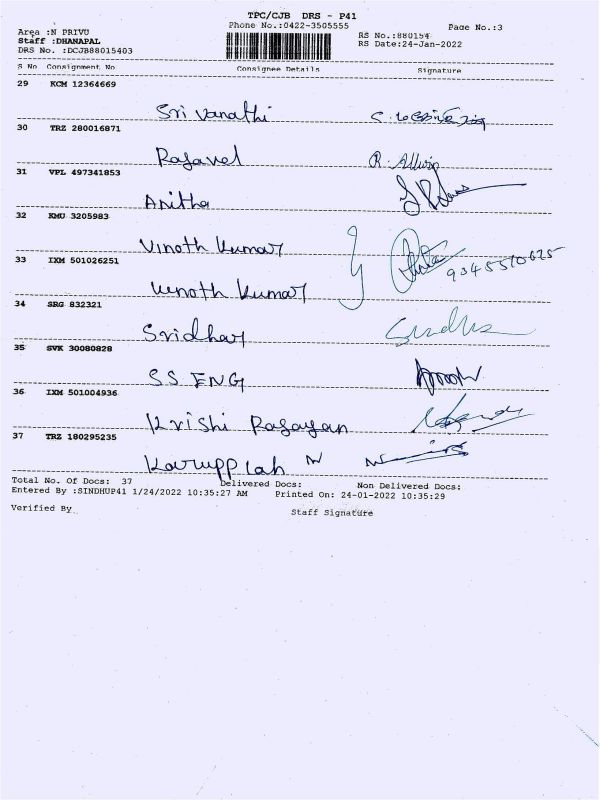 TPC/CJB DRS - P41
Phone No.:0422-3505555
Page No.:3
Area :N PRIVU
RS No.:880154
Staff :DHANAPAL
RS Date:24-Jan-2022
DRS No. :DCJB88015403
S No Consignment No Consignee Details Signature
29 KCM 12364669
Sri Vanathi
30 TRZ 280016871
Rajavel R. Allwin
31 VPL 497341853
Anitha
32 KMU 3205983
Vinoth Kumar
33 IXM 501026251
Vinoth Kumar
34 SRG 832321
Sridhar
35 SVK 30080828
S.S ENG
36 IXM 501004936
Krishi Rajayan
37 TRZ 180295235
Karuppiah N
Total No. Of Docs: 37 Delivered Docs: Non Delivered Docs:
Entered By :SINDHUP41 1/24/2022 10:35:27 AM Printed On: 24-01-2022 10:35:29
Verified By Staff Signature